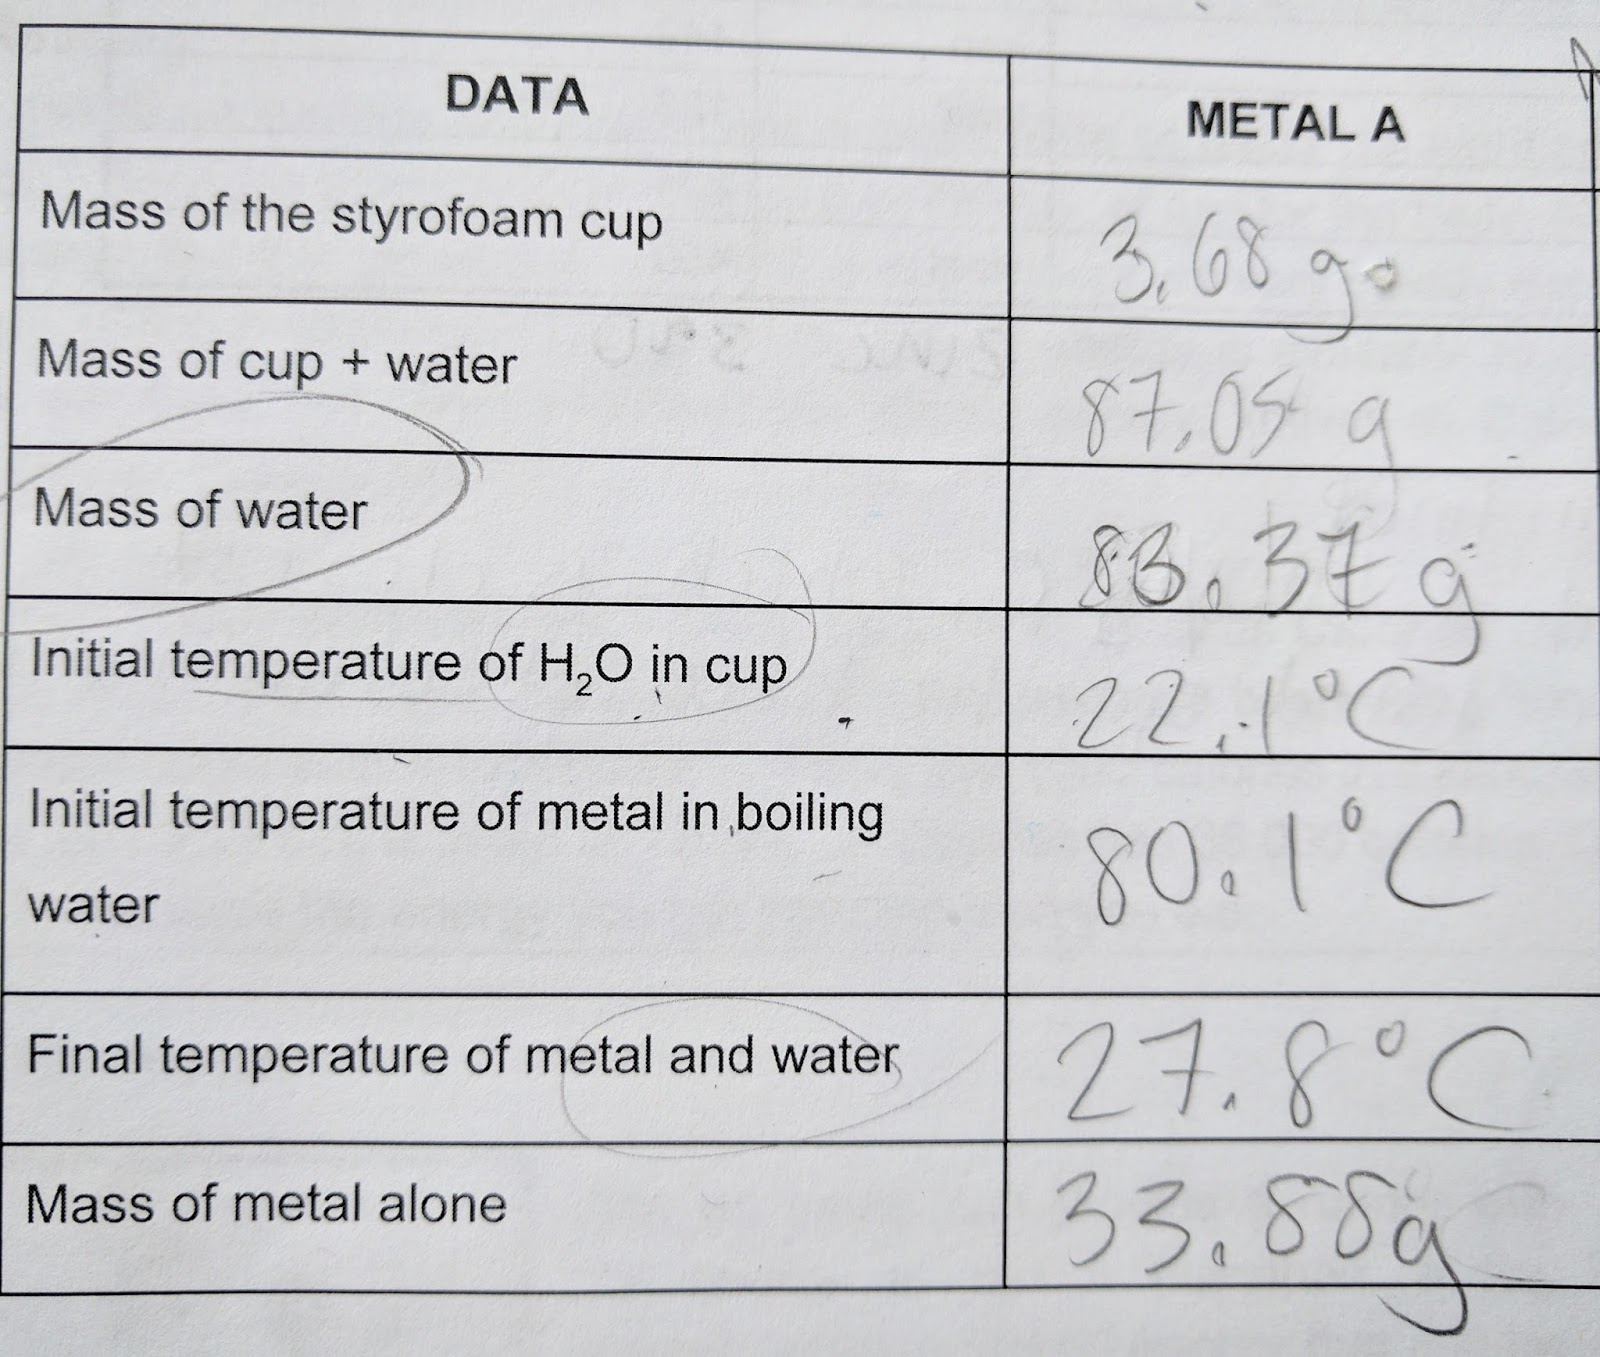 DATA METAL A
Mass of the styrofoam cup 3.68 g
Mass of cup + water 87.05 g
Mass of water 83.37 g
Initial temperature of H₂O in cup 22.1°C
Initial temperature of metal in boiling 80.1°C
water
Final temperature of metal and water 27.8°C
Mass of metal alone 33.88g